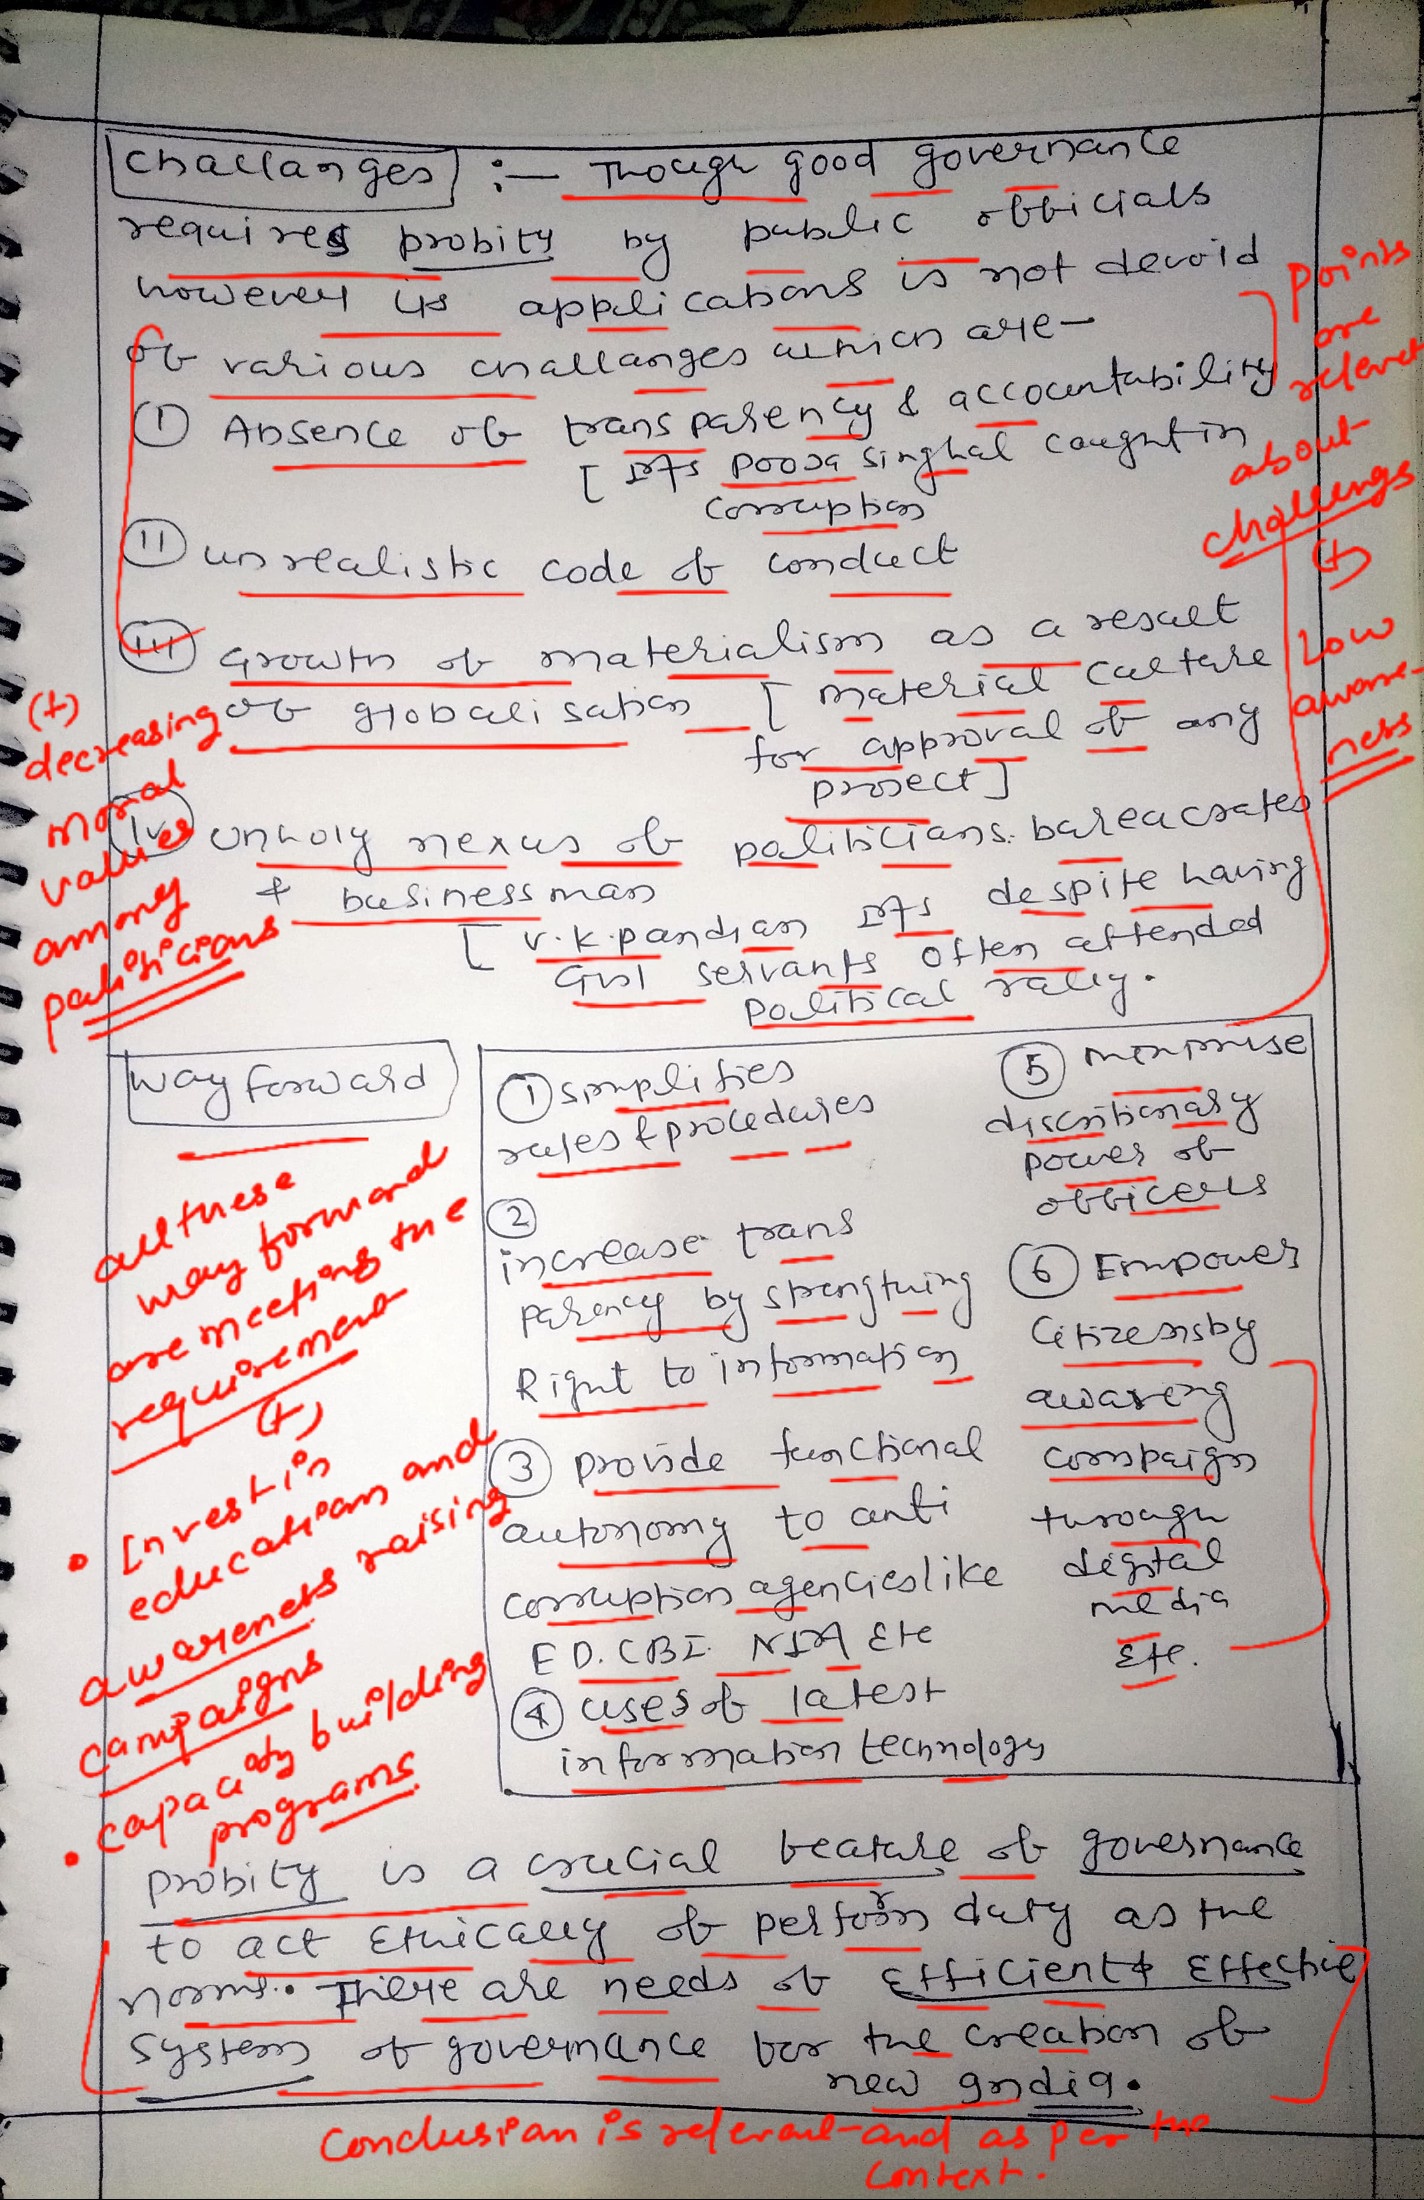 Challanges :- Though good governance
requires probity by public officials
however its applications is not devoid
of various challanges which are-
(I) Absence of transparency & accountability
[IAS Pooja Singhal caught in
corruption
(II) unrealistic code of conduct
(III) Growth of materialism as a result
of globalisation [material culture
for approval of any
project]
(IV) Unholy nexus of politicians. bureacrates
& businessman
[V.K. Pandian IAS despite having
Gvt servants often attended
political rally.
points
are
relevant
about
challenges
(+)
Low
aware-
ness
(+)
decreasing
moral
values
among
politicians
Way forward
(1) simplifies
rules & procedures
(2)
increase trans
parency by strengthing
Right to information
(3) Provide functional
autonomy to anti
corruption agencies like
ED. CBI. NIA Etc
(4) uses of latest
information technology
(5) minimise
discritionary
power of
officers
(6) Empower
Citizens by
awaring
compaign
through
digital
media
Etc.
all these
way forward
are meeting the
requirement
(+)
• Invest in
education and
awareness raising
campaigns
• capacity building
programs
Probity is a crucial feature of governance
to act Ethically of perform duty as the
norms. There are needs of Efficient & Effective
system of governance for the creation of
new India.
Conclusion is relevant and as per the
context.